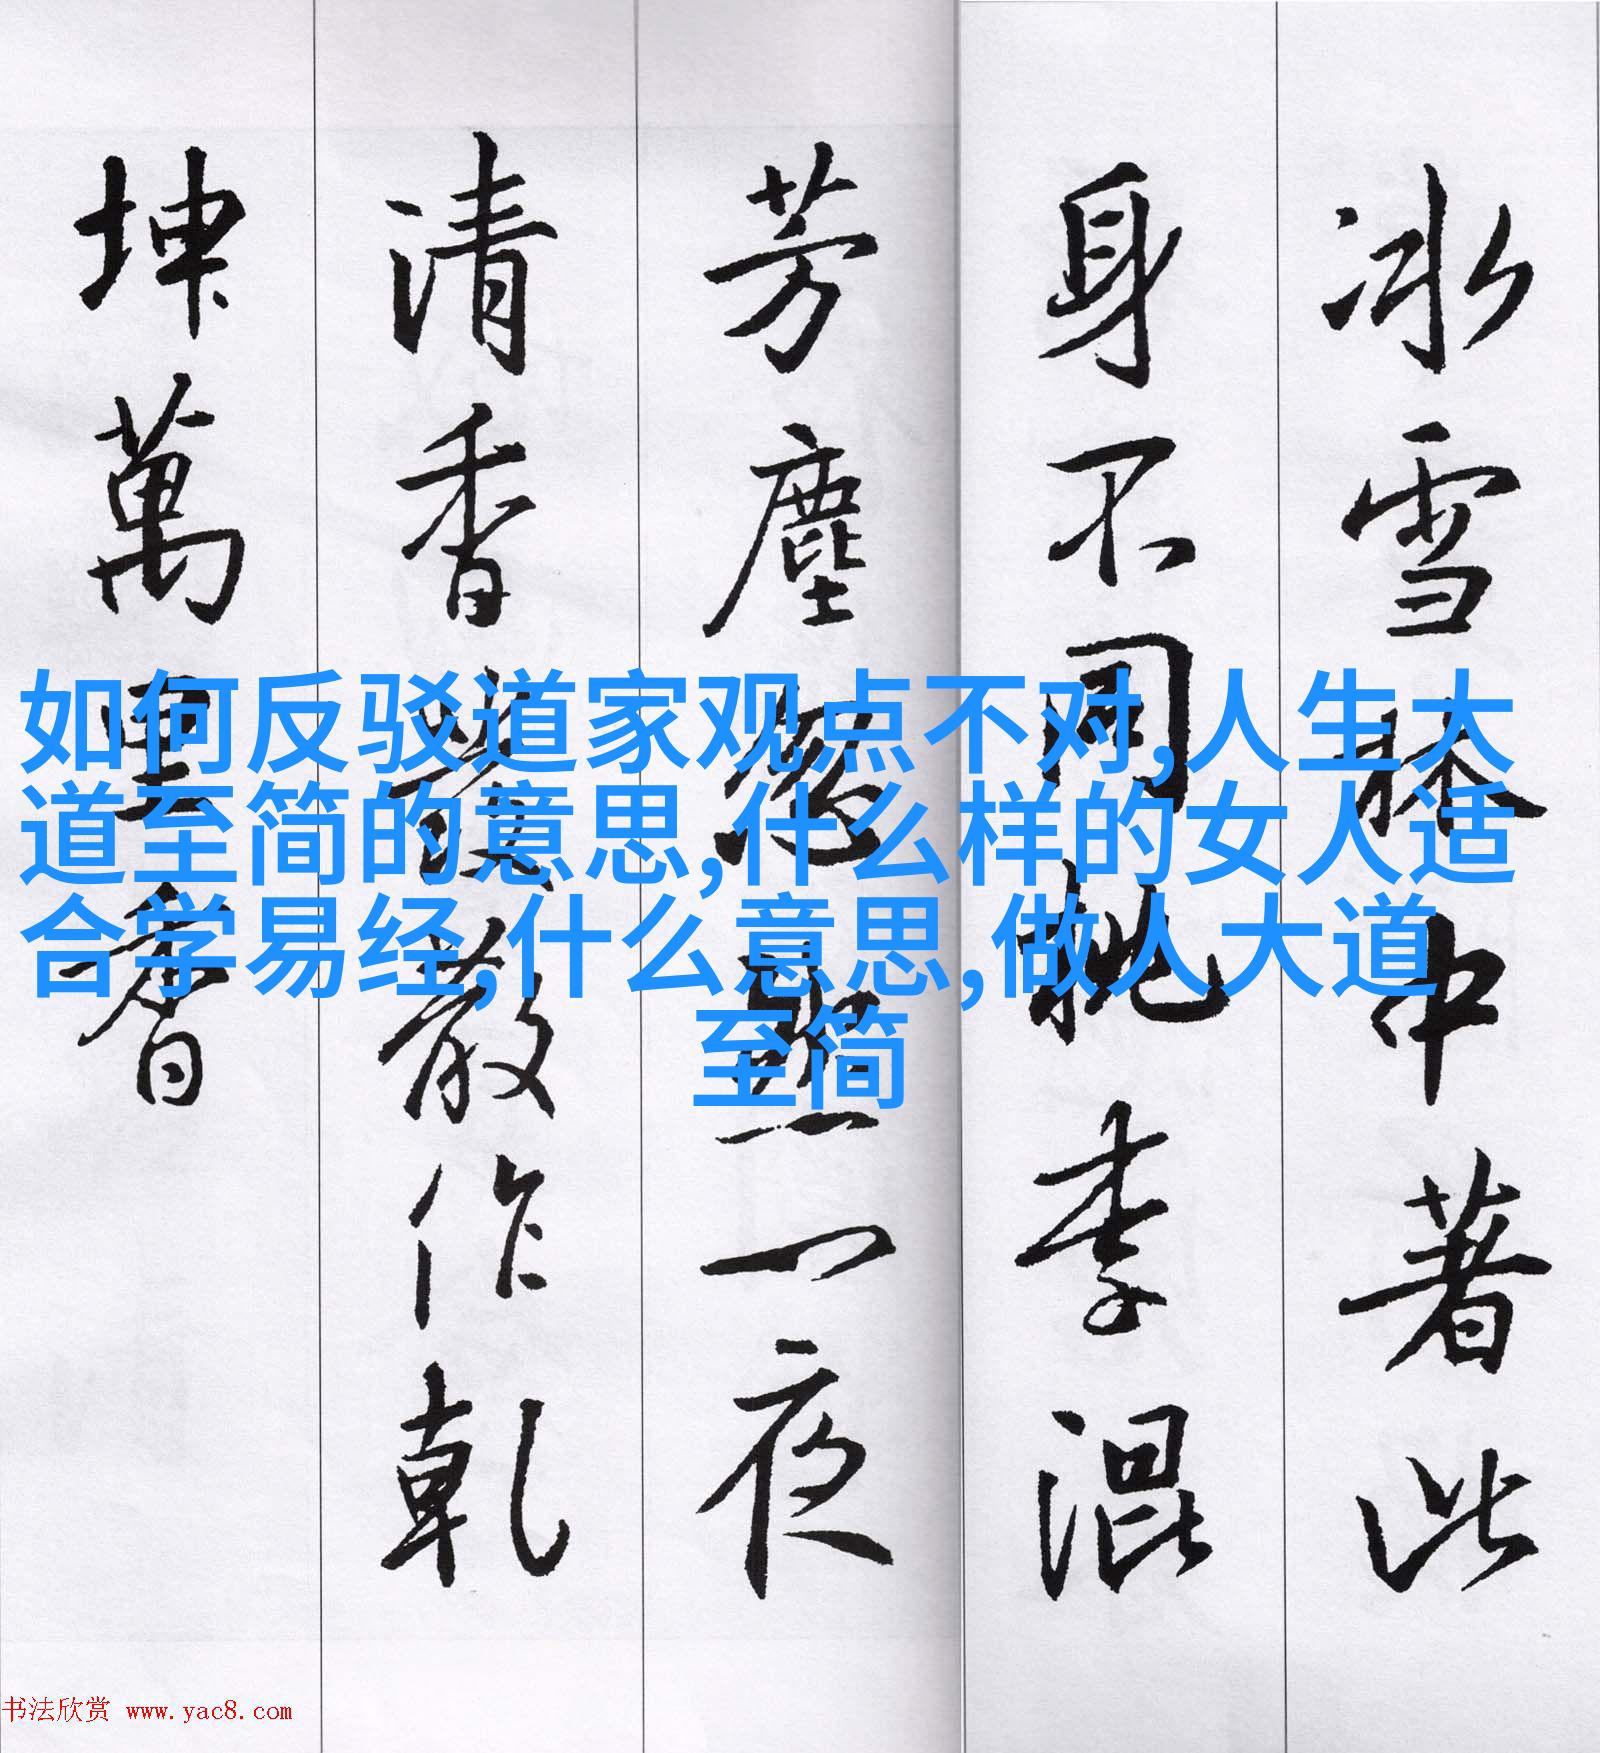 冰雪林中著此
身不同桃李混
芳塵忽然一夜
清香發散作乾
坤萬里春
如何反驳道家观点不对,人生大
道至简的意思,什么样的女人适
合学易经,什么意思,做人大道
至简
书法欣赏 www.yac8.com